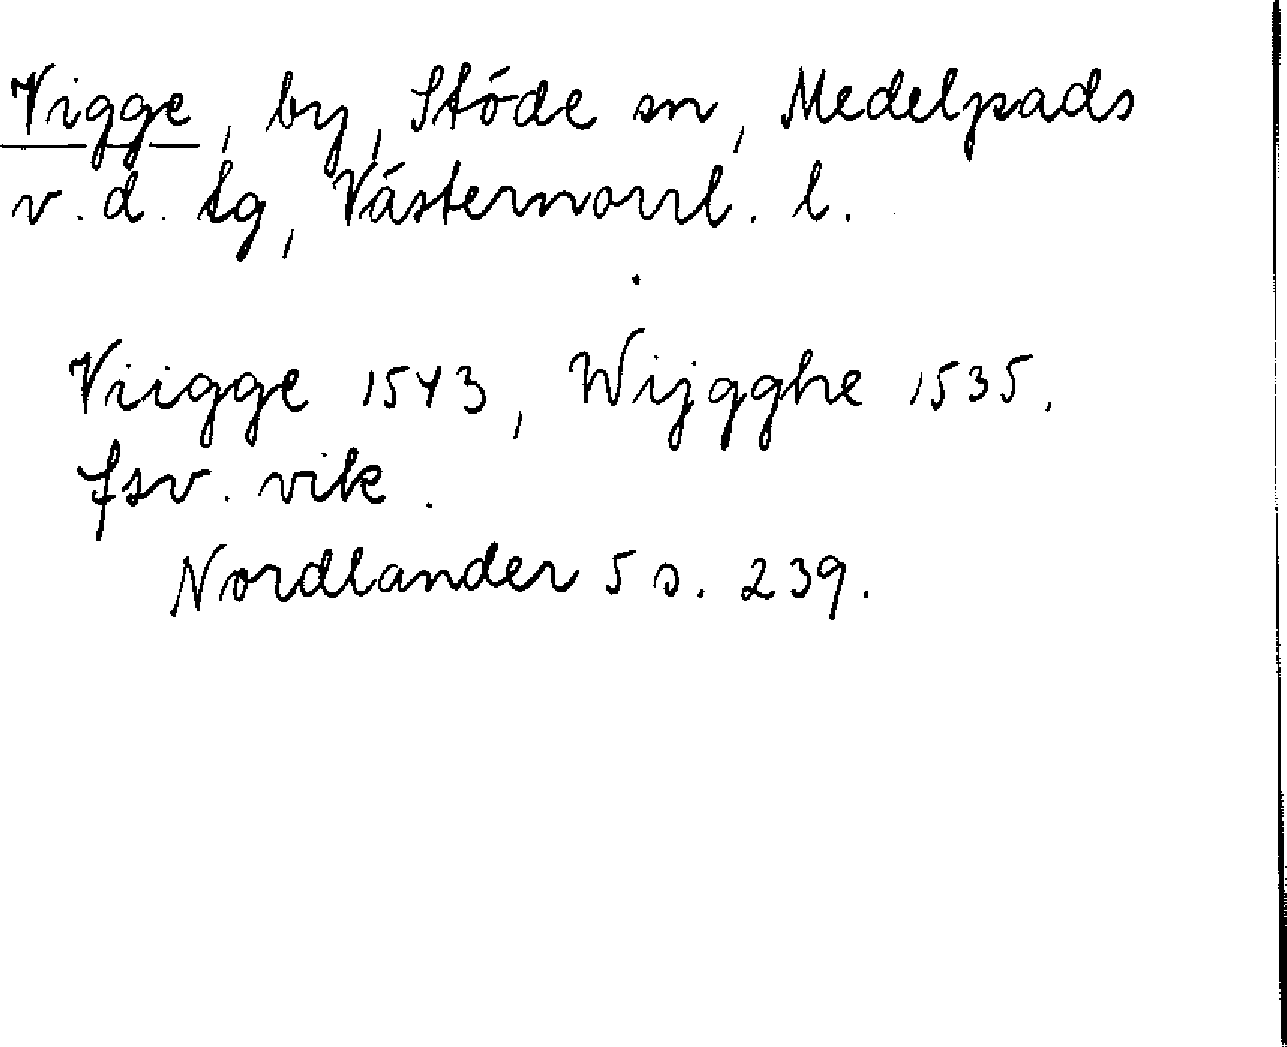 Vigge, by, Stöde sn, Medelpads
v. d. tg, Västernorrl. l.
Viigge 1543, Wijgghe 1535.
fsv. vik.
Nordlander 5 s. 239.